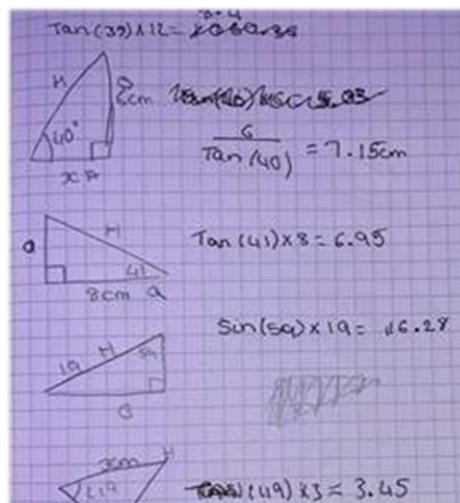 Tan(39)×12=
H
6cm
40°
x A
6/Tan(40) = 7.15cm
O H
41
8cm a
Tan(41)×8=6.95
19 H
59
O
Sin(59)×19= 16.28
3cm H
49
(49)×3=3.45